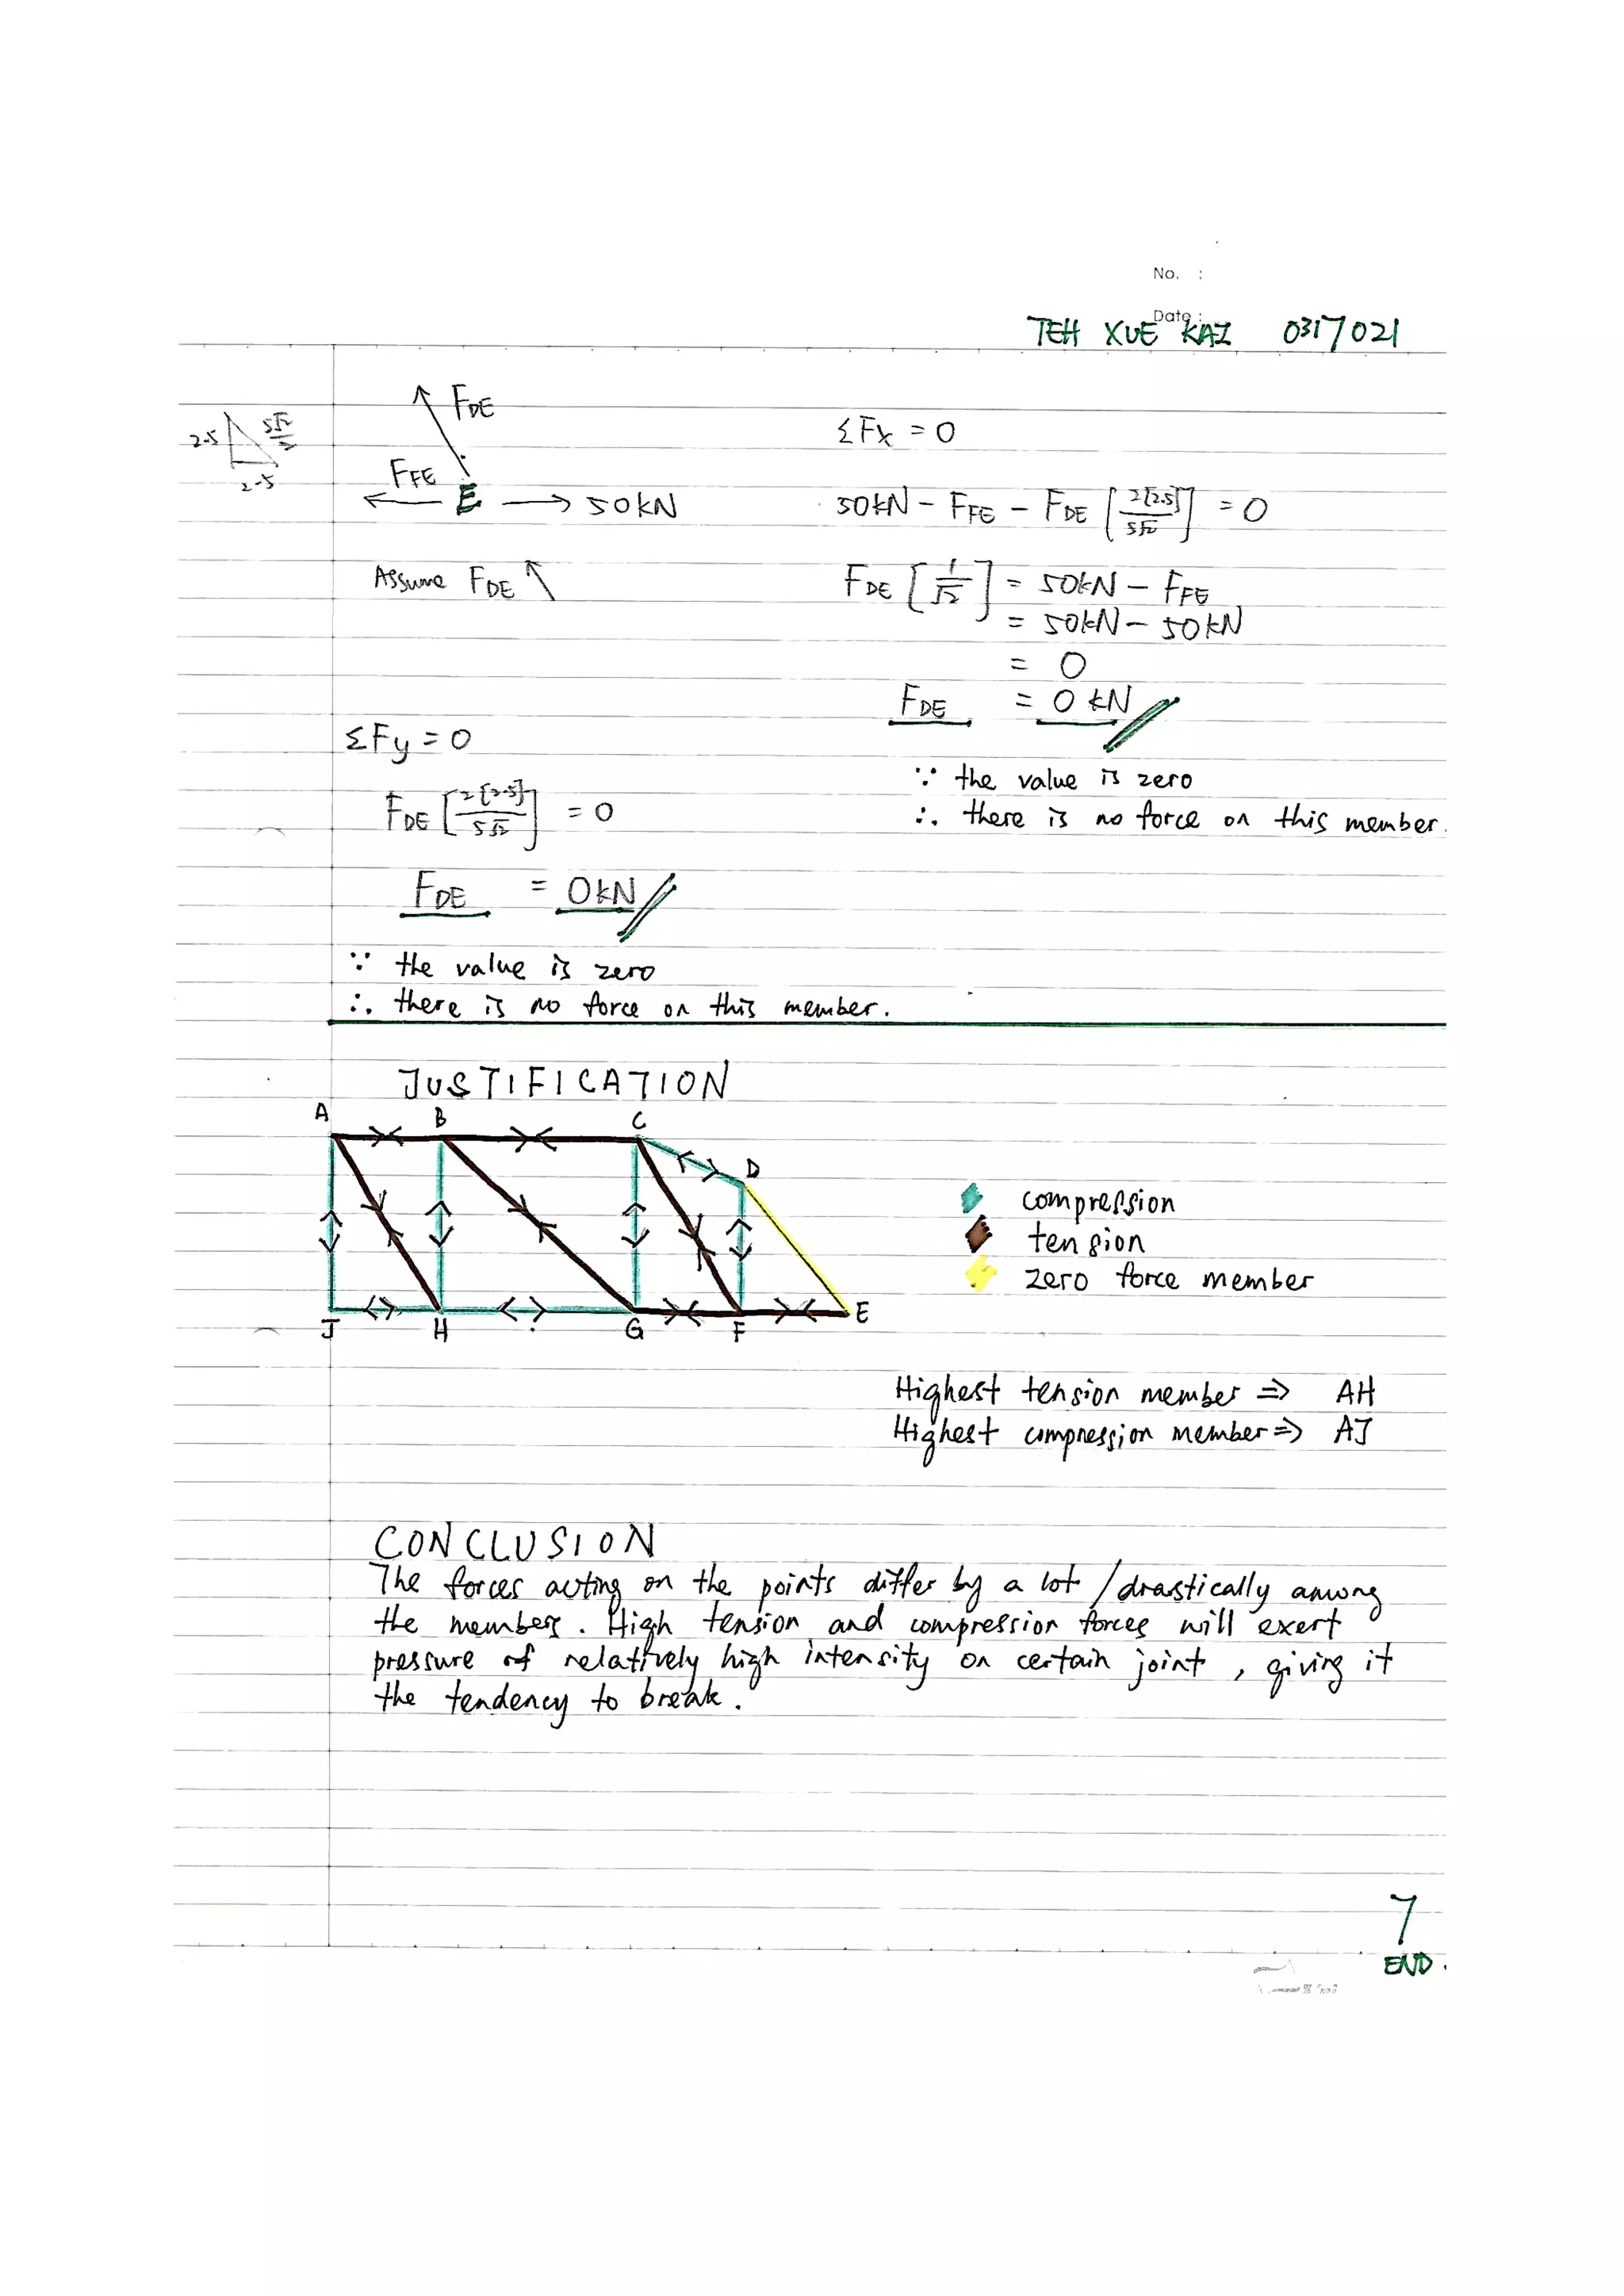 No. :
Date :
TEH XUE KAI 0317021
F_DE
2.5
5√2
2
2.5
F_FE
E
50kN
Assume F_DE ↖
ΣFx = 0
50kN - F_FE - F_DE [2[2.5]/5√2] = 0
F_DE [1/√2] = 50kN - F_FE
= 50kN - 50kN
= 0
F_DE = 0 kN
∵ the value is zero
∴ there is no force on this member.
ΣFy = 0
F_DE [2[2.5]/5√2] = 0
F_DE = 0kN
∵ the value is zero
∴ there is no force on this member.
JUSTIFICATION
A B C
D
E
J H G F
compression
tension
zero force member
Highest tension member ⇒ AH
Highest compression member ⇒ AJ
CONCLUSION
The forces acting on the points differ by a lot / drastically among
the members. High tension and compression forces will exert
pressure of relatively high intensity on certain joint, giving it
the tendency to break.
7
END.